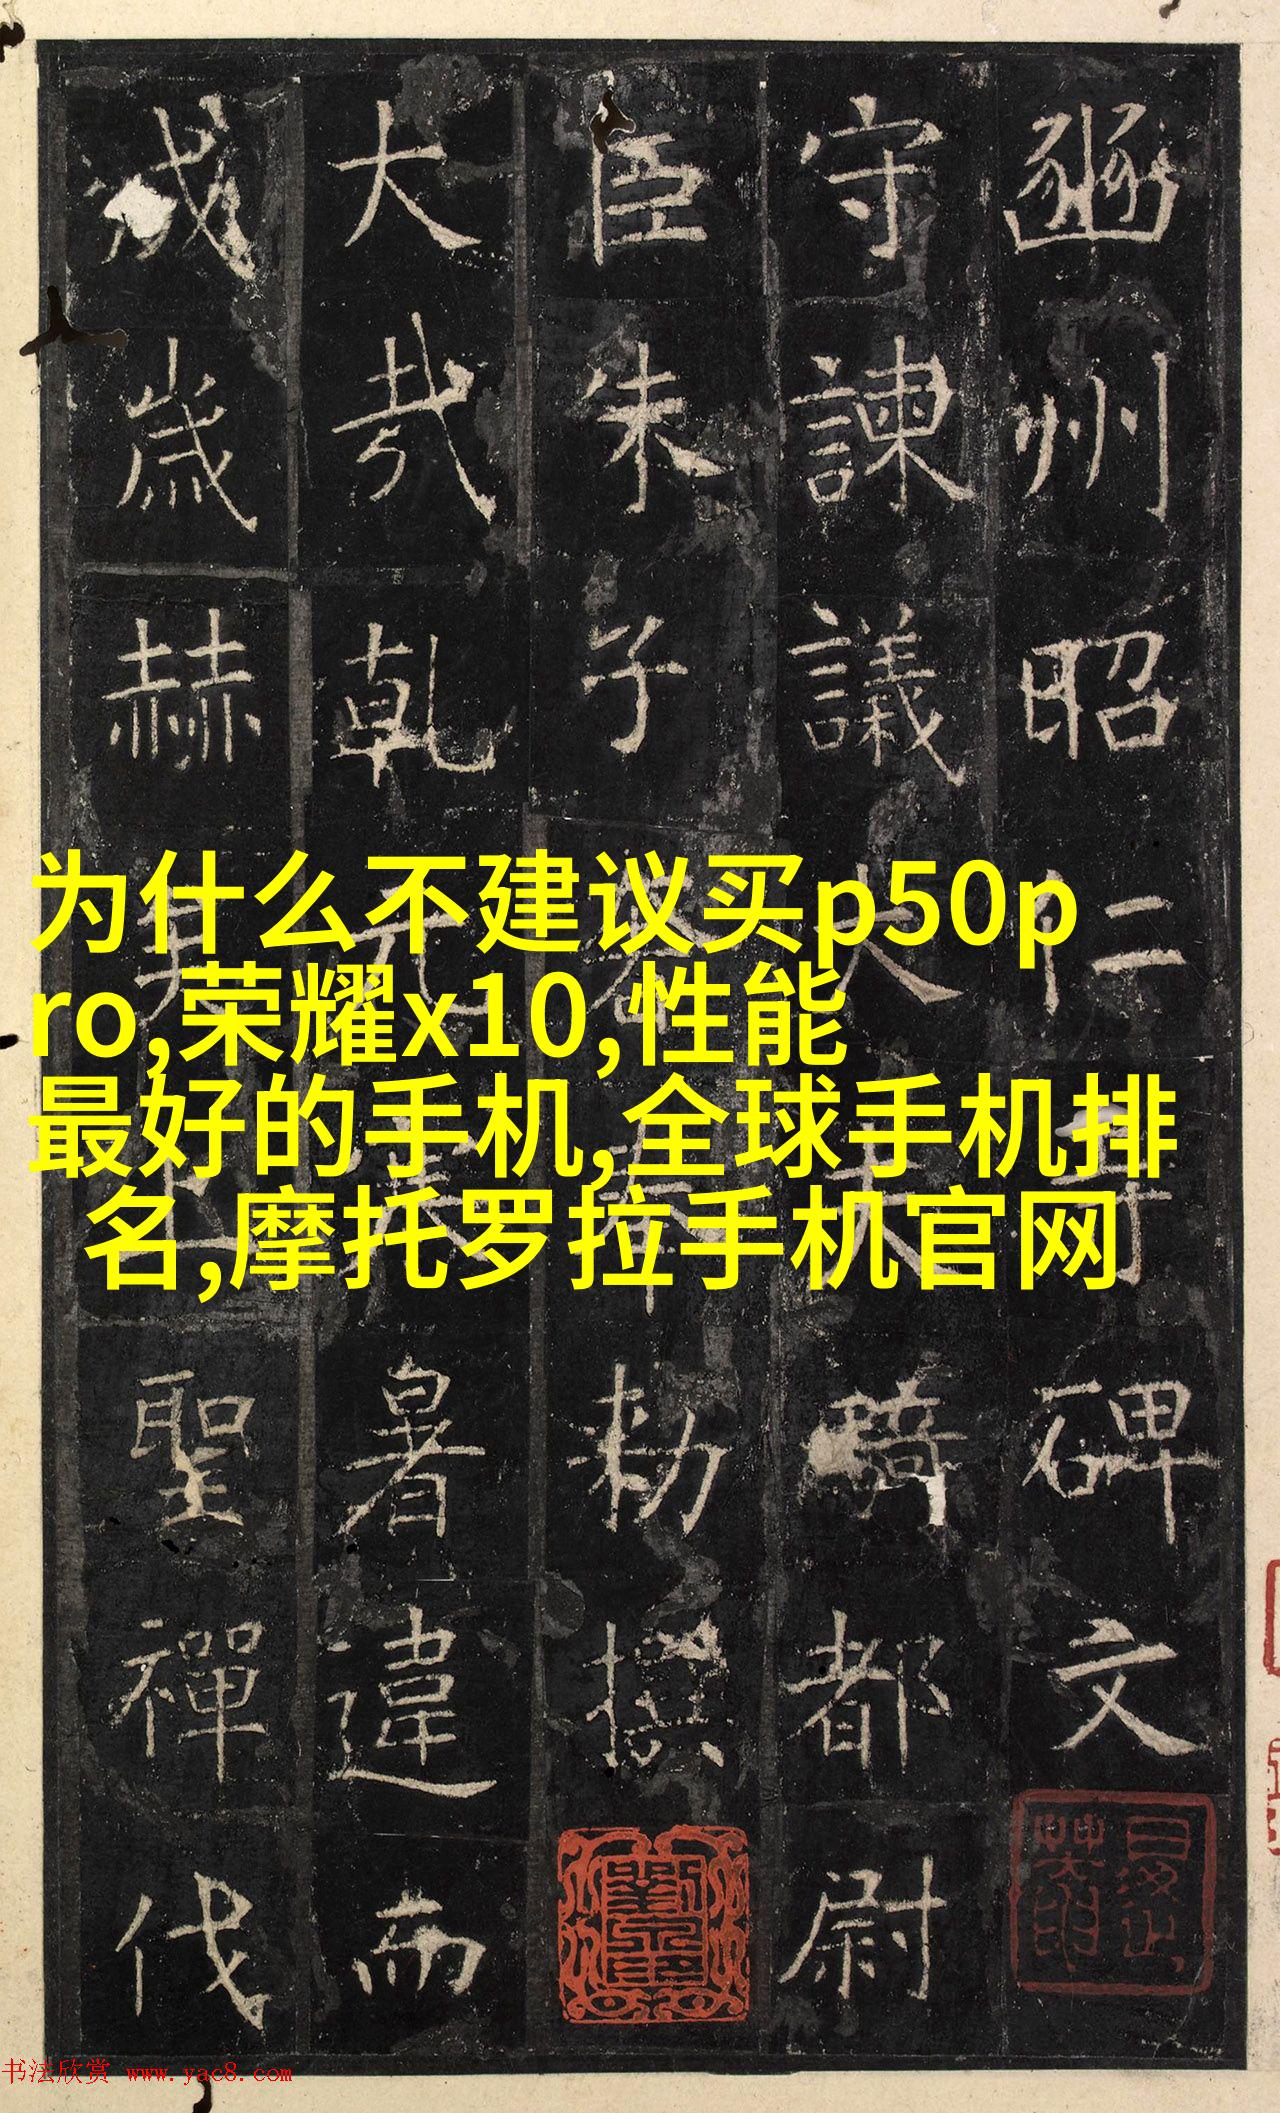 豳州昭仁寺碑文
守諫議大夫騎都尉
臣朱子奢奉勅撰
大哉乾元寒暑違而
成歲赫矣上聖禪代
为什么不建议买p50p
ro,荣耀x10,性能
最好的手机,全球手机排
名,摩托罗拉手机官网
书法欣赏 www.yac8.com